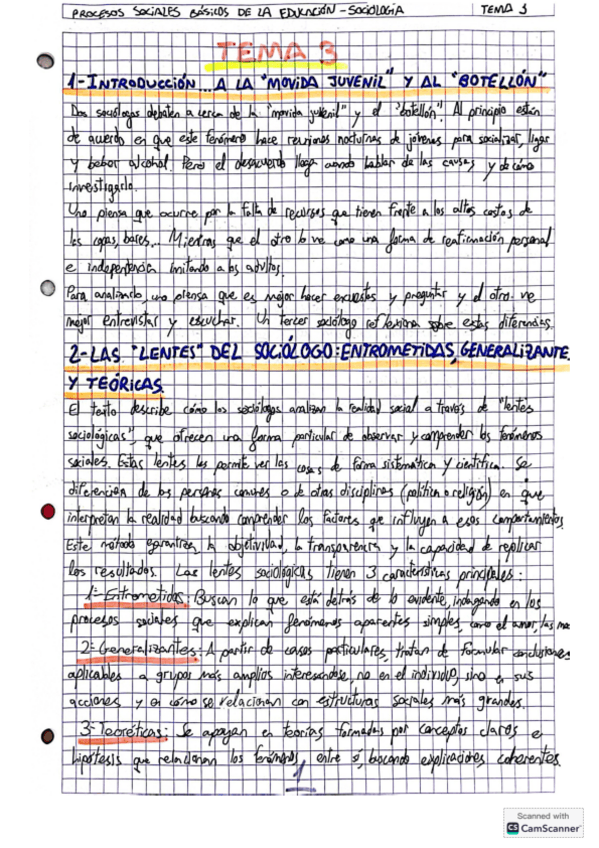 PROCESOS SOCIALES BÁSICOS DE LA EDUCACIÓN - SOCIOLOGÍA TEMA 3
TEMA 3
1-INTRODUCCIÓN... A LA "MOVIDA JUVENIL" Y AL "BOTELLÓN"
Dos sociólogos debaten a cerca de la "movida juvenil" y el "botellón". Al principio están
de acuerdo en que este fenómeno hace reuniones nocturnas de jóvenes para socializar, ligar
y beber alcohol. Pero el desacuerdo llega cuando hablar de las causas y de cómo
investigarlo.
Uno piensa que ocurre por la falta de recursos que tienen frente a los altos costos de
las copas, bares... Mientras que el otro lo ve como una forma de reafirmación personal
e independencia imitando a los adultos.
Para analizarlo, uno piensa que es mejor hacer encuestas y preguntar y el otro ve
mejor entrevistar y escuchar. Un tercer sociólogo reflexiona sobre estas diferencias.
2-LAS "LENTES" DEL SOCIÓLOGO: ENTROMETIDAS, GENERALIZANTE
Y TEÓRICAS.
El texto describe cómo los sociólogos analizan la realidad social a través de "lentes
sociológicas", que ofrecen una forma particular de observar y comprender los fenómenos
sociales. Estas lentes les permite ver las cosas de forma sistemática y científica. Se
diferencian de las personas comunes o de otras disciplinas (política o religión) en que
interpretan la realidad buscando comprender los factores que influyen a esos comportamientos.
Este método garantiza la objetividad, la transparencia y la capacidad de replicar
los resultados. Las lentes sociológicas tienen 3 características principales:
1º Entrometidas: Buscan lo que está detrás de lo evidente, indagando en los
procesos sociales que explican fenómenos aparentes simples, como el amor, las mo
2º Generalizantes: A partir de casos particulares, tratan de formular conclusiones
aplicables a grupos más amplios interesándose, no en el individuo, sino en sus
acciones y en cómo se relacionan con estructuras sociales más grandes.
3º Teoréticas: Se apoyan en teorías formadas por conceptos claros e
hipótesis que relacionan los fenómenos entre sí, buscando explicaciones coherentes.
1
Scanned with
CS CamScanner